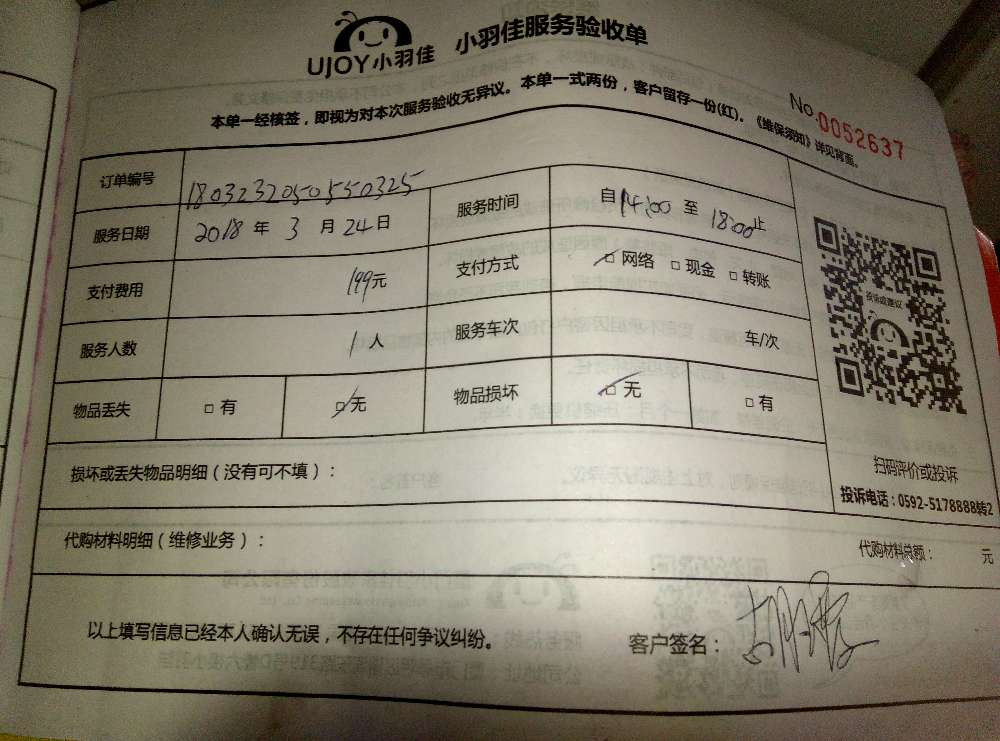 UJOY小羽佳 小羽佳服务验收单
本单一经核签，即视为对本次服务验收无异议。本单一式两份，客户留存一份(红)。《维保须知》详见背面。
No.0052637
订单编号 1803232050550325
服务日期 2018年3月24日 服务时间 自14:00至18:00止
支付费用 199元 支付方式 □网络 □现金 □转账
服务人数 1人 服务车次 车/次
物品丢失 □有 □无 物品损坏 □无 □有
投诉或建议
扫码评价或投诉
投诉电话：0592-5178888转2
损坏或丢失物品明细（没有可不填）：
代购材料明细（维修业务）： 代购材料总额： 元
以上填写信息已经本人确认无误，不存在任何争议纠纷。 客户签名：